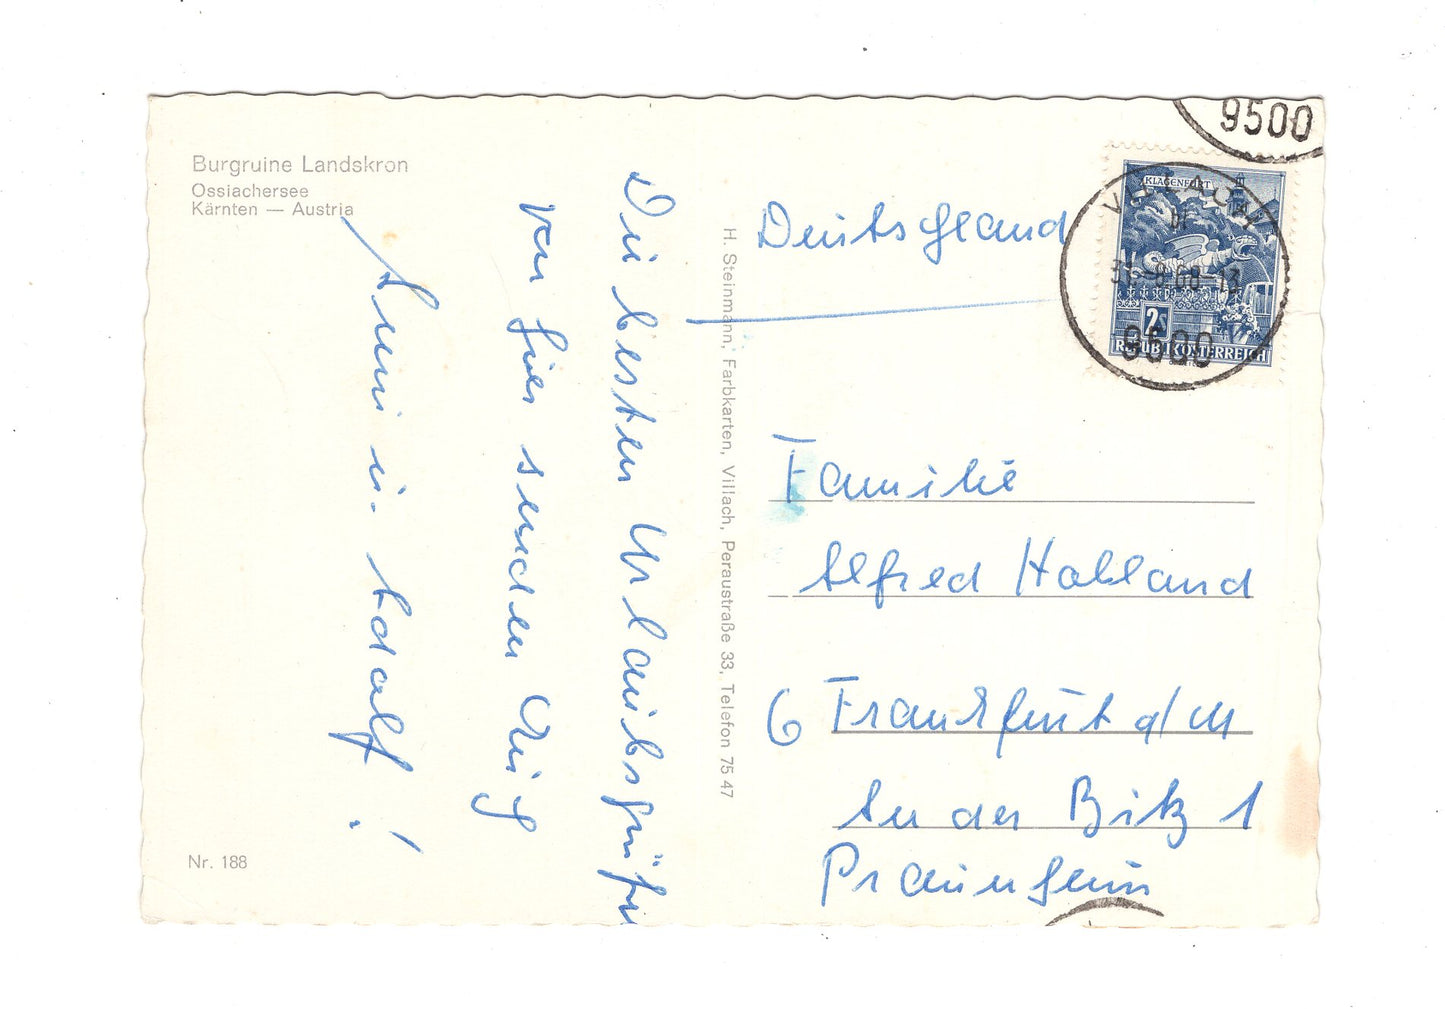 Burgruine Landskron
Ossiachersee
Kärnten — Austria
Die besten Urlaubsgrüße
von hier senden Euch
Anni u. Adolf !
Nr. 188
H. Steinmann, Farbkarten, Villach, Peraustraße 33, Telefon 75 47
9500
KLAGENFURT
2S
REPUBLIK ÖSTERREICH
VILLACH
31.-8.68-13
9500
Deutschland
Familie
Alfred Halland
6 Frankfurt a/M
An der Bitz 1
Praunheim